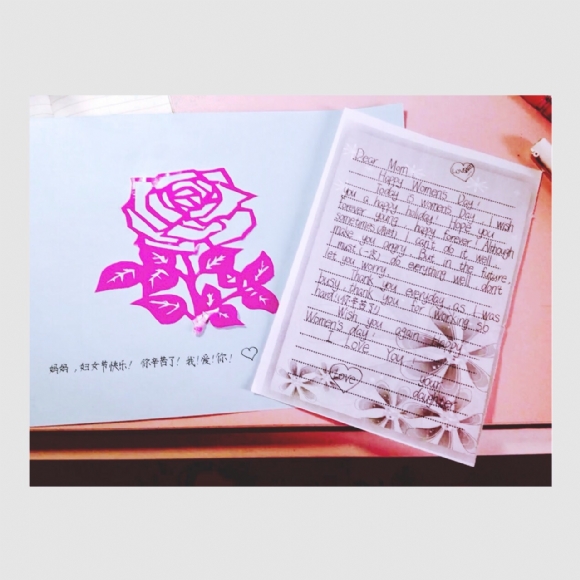 妈妈，妇女节快乐！你辛苦了！我！爱！你！
Dear Mom
Happy Women's Day!
Today is women's Day. I wish
you a happy holiday. I hope you
forever young, happy forever! Although
sometimes, I can't do it well,
make you angry. But in the future,
I must do everything well, don't
let you worry.
Thank you everyday as I was
busy, thank you for working so
hard! (你辛苦了!)
Wish you again happy
Women's day!
I Love You
Love your
daughter